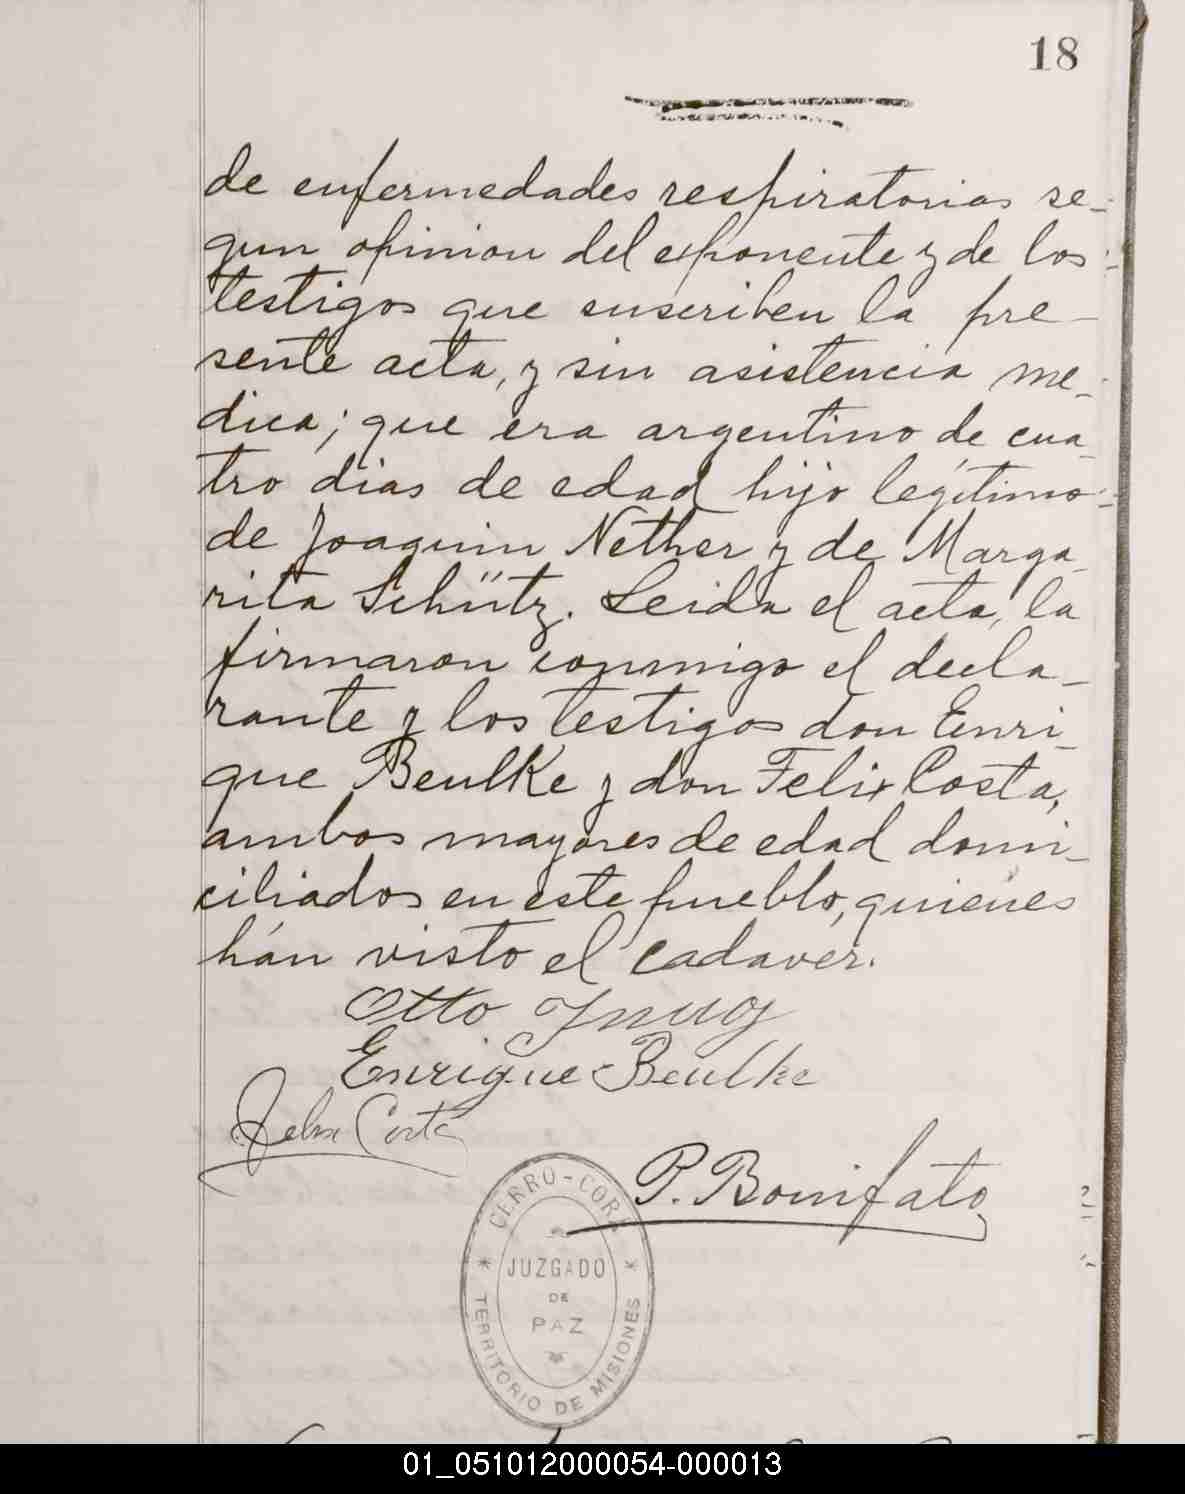 18
de enfermedades respiratorias se-
gun opinion del exponente y de los
testigos que suscriben la pre-
sente acta, y sin asistencia me-
dica; que era argentino de cua-
tro dias de edad hijo legítimo
de Joaquin Nether y de Marga-
rita Schütz. Leida el acta, la
firmaron conmigo el decla-
rante y los testigos don Enri-
que Beulke y don Felix Costa,
ambos mayores de edad domi-
ciliados en este pueblo, quienes
hán visto el cadaver.
Otto
Enrique Beulke
Felix Costa
P. Bonifato
CERRO-CORÁ
JUZGADO
DE
PAZ
TERRITORIO DE MISIONES
01_051012000054-000013